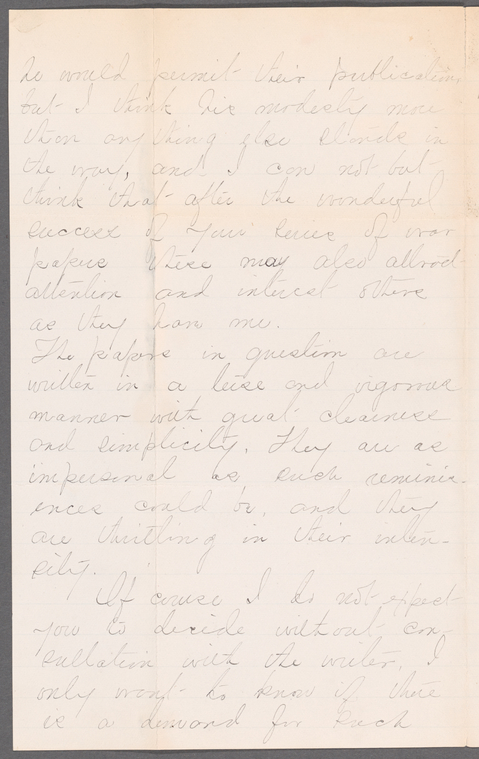 he would permit their publication,
but I think his modesty more
than anything else stands in
the way, and I can not but
think that after the wonderful
success of your series of war
papers these may also attract
attention and interest others
as they have me.
The papers in question are
written in a terse and vigorous
manner with great clearness
and simplicity. They are as
impersonal as such reminis-
ences could be, and they
are thrilling in their inten-
sity.
Of course I do not expect
you to decide without con-
sultation with the writer. I
only want to know if there
is a demand for such